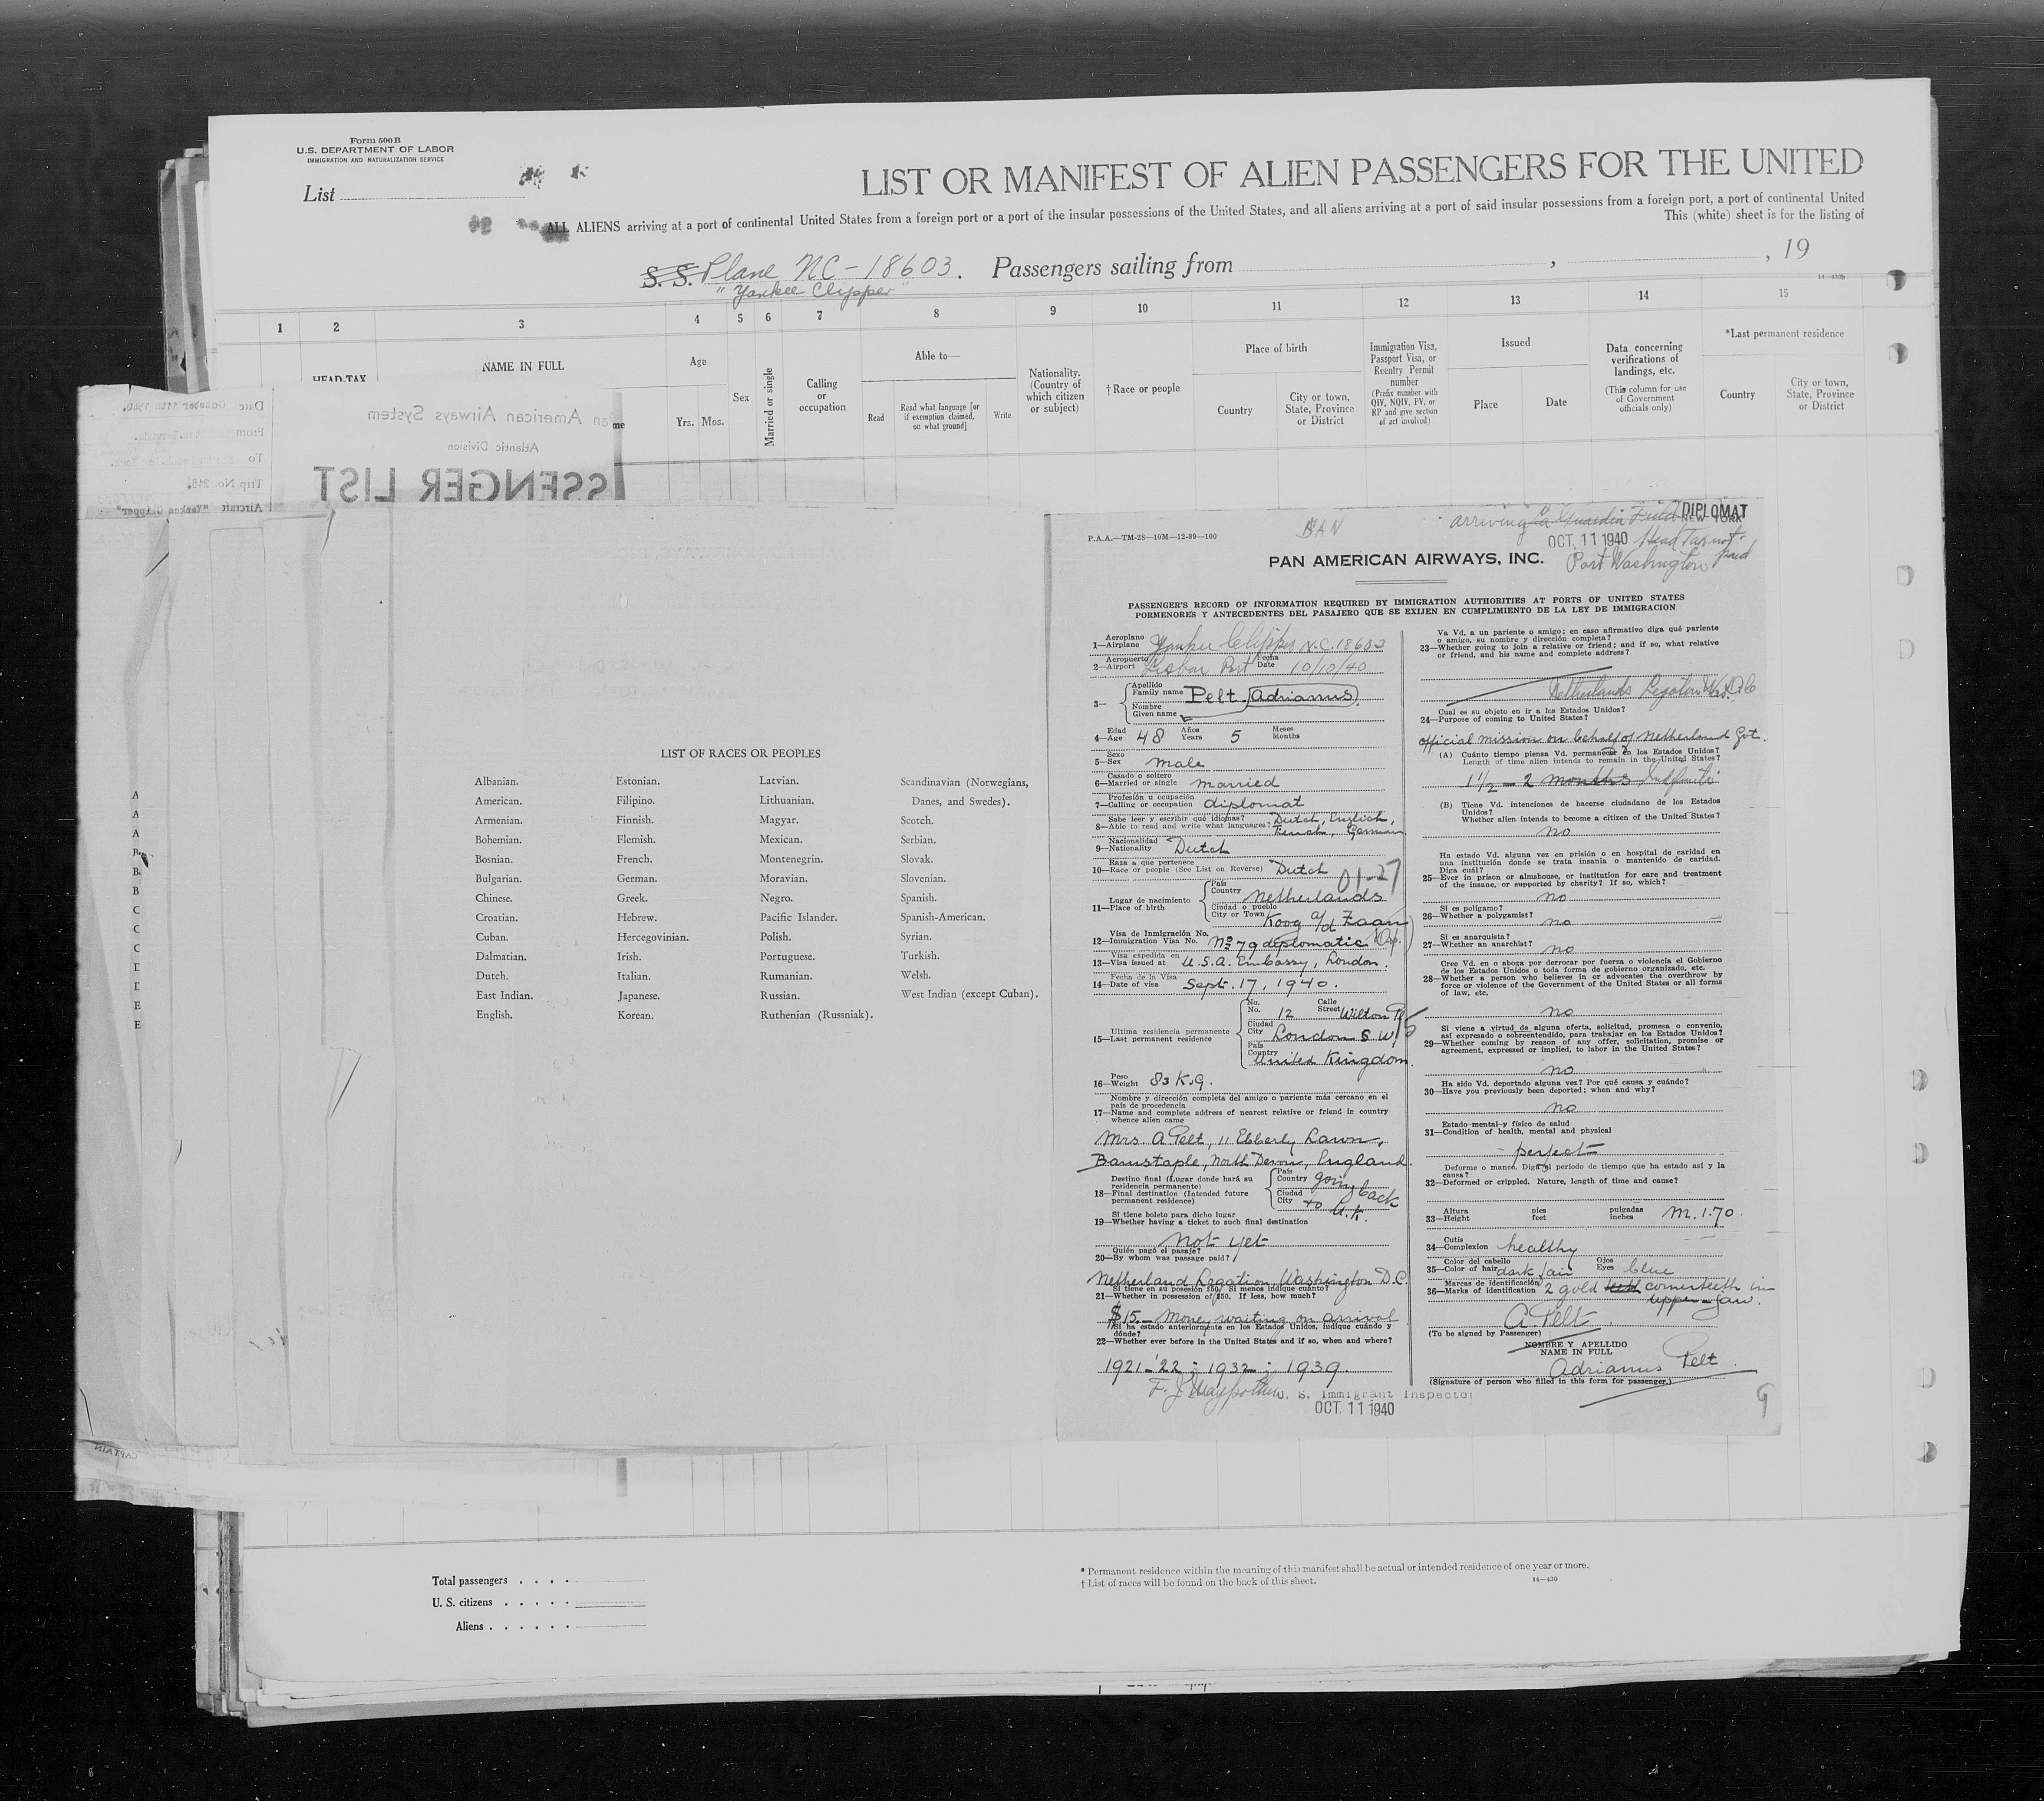 Form 500B
U.S. DEPARTMENT OF LABOR
IMMIGRATION AND NATURALIZATION SERVICE
List
LIST OR MANIFEST OF ALIEN PASSENGERS FOR THE UNITED
ALL ALIENS arriving at a port of continental United States from a foreign port or a port of the insular possessions of the United States, and all aliens arriving at a port of said insular possessions from a foreign port, a port of continental United
This (white) sheet is for the listing of
S. S. Plane NC-18603. Passengers sailing from , , 19
"Yankee Clipper"
14-430b
1 2 3 4 5 6 7 8 9 10 11 12 13 14 15
HEAD-TAX
NAME IN FULL
me
Age
Yrs. Mos.
Sex
Married or single
Calling
or
occupation
Able to—
Read
Read what language [or
if exemption claimed,
on what ground]
Write
Nationality.
(Country of
which citizen
or subject)
†Race or people
Place of birth
Country
City or town,
State, Province
or District
Immigration Visa,
Passport Visa, or
Reentry Permit
number
(Prefix number with
QIV, NQIV, PV, or
RP and give section
of act involved)
Issued
Place
Date
Data concerning
verifications of
landings, etc.
(This column for use
of Government
officials only)
*Last permanent residence
Country
City or town,
State, Province
or District
Date October 11th 1940.
From
To
Trip No. 248.
Aircraft "Yankee Clipper"
an American Airways System
Atlantic Division
SSENGER LIST
CAPTAIN
LIST OF RACES OR PEOPLES
Albanian.
American.
Armenian.
Bohemian.
Bosnian.
Bulgarian.
Chinese.
Croatian.
Cuban.
Dalmatian.
Dutch.
East Indian.
English.
Estonian.
Filipino.
Finnish.
Flemish.
French.
German.
Greek.
Hebrew.
Hercegovinian.
Irish.
Italian.
Japanese.
Korean.
Latvian.
Lithuanian.
Magyar.
Mexican.
Montenegrin.
Moravian.
Negro.
Pacific Islander.
Polish.
Portuguese.
Rumanian.
Russian.
Ruthenian (Russniak).
Scandinavian (Norwegians,
Danes, and Swedes).
Scotch.
Serbian.
Slovak.
Slovenian.
Spanish.
Spanish-American.
Syrian.
Turkish.
Welsh.
West Indian (except Cuban).
P.A.A.—TM-28—10M—12-39—100
arriving La Guardia Field
DIPLOMAT
NEW YORK
OCT. 11 1940 Head Tax not paid
Port Washington
PAN AMERICAN AIRWAYS, INC.
PASSENGER'S RECORD OF INFORMATION REQUIRED BY IMMIGRATION AUTHORITIES AT PORTS OF UNITED STATES
PORMENORES Y ANTECEDENTES DEL PASAJERO QUE SE EXIJEN EN CUMPLIMIENTO DE LA LEY DE IMMIGRACION
Aeroplano
1—Airplane Yankee Clipper N.C. 18603
Aeropuerto Fecha
2—Airport Lisbon Port Date 10/10/40
Apellido
3— Family name Pelt, Adrianus.
Nombre
Given name
Edad Años Meses
4—Age 48 Years 5 Months
Sexo
5—Sex male
Casado o soltero
6—Married or single married
Profesión u ocupación
7—Calling or occupation diplomat
Sabe leer y escribir qué idiomas?
8—Able to read and write what languages? Dutch, English,
French, German
Nacionalidad
9—Nationality Dutch
Raza a que pertenece
10—Race or people (See List on Reverse) Dutch
01-27
Lugar de nacimiento
11—Place of birth
País
Country Netherlands
Ciudad o pueblo
City or Town Koog a/d Zaan
Visa de Inmigración No.
12—Immigration Visa No. No 79 diplomatic
Visa expedida en
13—Visa issued at U.S.A. Embassy, London.
Fecha de la Visa
14—Date of visa Sept. 17, 1940.
Ultima residencia permanente
15—Last permanent residence
No. Calle
No. 12 Street Wilton Pl
Ciudad
City London S.W.
País
Country United Kingdom
Peso
16—Weight 83 K.G.
Nombre y dirección completa del amigo o pariente más cercano en el
país de procedencia
17—Name and complete address of nearest relative or friend in country
whence alien came
Mrs. A Pelt, 11 Ebberly Lawn,
Barnstaple, North Devon, England.
Destino final (Lugar donde hará su
residencia permanente)
18—Final destination (Intended future
permanent residence)
País
Country going back
Ciudad
City to U.K.
Si tiene boleto para dicho lugar
19—Whether having a ticket to such final destination
not yet
Quién pagó el pasaje?
20—By whom was passage paid?
Netherland Legation, Washington D.C.
Si tiene en su posesión $50. Si menos indique cuánto?
21—Whether in possession of $50. If less, how much?
$15.— Money waiting on arrival
Si ha estado anteriormente en los Estados Unidos, indique cuándo y
dónde?
22—Whether ever before in the United States and if so, when and where?
1921-'22; 1932; 1939.
U. S. Immigrant Inspector
OCT. 11 1940
Va Vd. a un pariente o amigo; en caso afirmativo diga qué pariente
o amigo, su nombre y dirección completa?
23—Whether going to join a relative or friend; and if so, what relative
or friend, and his name and complete address?
Netherlands Legation
Cual es su objeto en ir a los Estados Unidos?
24—Purpose of coming to United States?
official mission on behalf of Netherland Gvt.
(A) Cuánto tiempo piensa Vd. permanecer en los Estados Unidos?
Length of time alien intends to remain in the United States?
1½ — 2 months Indefinite
(B) Tiene Vd. intenciones de hacerse ciudadano de los Estados
Unidos?
Whether alien intends to become a citizen of the United States?
no
Ha estado Vd. alguna vez en prisión o en hospital de caridad en
una institución donde se trata insania o mantenido de caridad.
Diga cuál?
25—Ever in prison or almshouse, or institution for care and treatment
of the insane, or supported by charity? If so, which?
no
Si es polígamo?
26—Whether a polygamist? no
Si es anarquista?
27—Whether an anarchist? no
Cree Vd. en o aboga por derrocar por fuerza o violencia el Gobierno
de los Estados Unidos o toda forma de gobierno organizado, etc.
28—Whether a person who believes in or advocates the overthrow by
force or violence of the Government of the United States or all forms
of law, etc.
no
Si viene a virtud de alguna oferta, solicitud, promesa o convenio,
así expresado o sobreentendido, para trabajar en los Estados Unidos?
29—Whether coming by reason of any offer, solicitation, promise or
agreement, expressed or implied, to labor in the United States?
no
Ha sido Vd. deportado alguna vez? Por qué causa y cuándo?
30—Have you previously been deported; when and why?
no
Estado mental y físico de salud
31—Condition of health, mental and physical
perfect
Deforme o manco. Diga el período de tiempo que ha estado así y la
causa?
32—Deformed or crippled. Nature, length of time and cause?
Altura pies pulgadas
33—Height feet inches m. 1.70.
Cutis
34—Complexion healthy
Color del cabello Ojos
35—Color of hair dark/air Eyes blue
Marcas de identificación
36—Marks of identification 2 gold teeth cornerteeth in
upper jaw.
A. Pelt.
(To be signed by Passenger)
NOMBRE Y APELLIDO
NAME IN FULL
Adrianus Pelt
(Signature of person who filled in this form for passenger.)
9
Total passengers
U. S. citizens
Aliens
* Permanent residence within the meaning of this manifest shall be actual or intended residence of one year or more.
† List of races will be found on the back of this sheet.
14—430